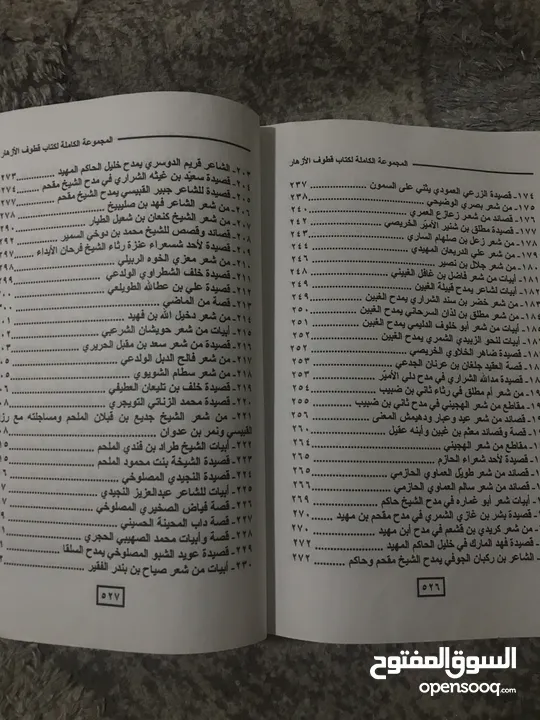 المجموعة الكاملة لكتاب قطوف الأزهار
١٧٤- قصيدة الزرعي العمودي يثني على السمون ............ ٢٣٧
١٧٥- من شعر بصري الوضيحي ............ ٢٣٨
١٧٦- قصائد من شعر زعازع العمري ............ ٢٤٠
١٧٧- قصيدة مطلق بن شتير الأميّر الخريصي ............ ٢٤٢
١٧٨- من شعر زعل بن صلهام الساري ............ ٢٤٣
١٧٩- من شعر علي الدريعان المهيدي ............
١٨٠- من شعر جلال بن نصير ............
١٨١- أبيات من شعر فاضل بن غافل الغبيني ............ ٢٤٨
١٨٢- أبيات لشاعر يمدح قبيلة الغبين ............ ٢٤٩
قصائد من شعر خضر بن سند الشراري يمدح الغبين ............ ٢٤٩
من شعر مطلق بن لذان السرحاني يمدح الغبين ............
أبيات من شعر أبو خلوف الدليمي يمدح الغبين ............
أبيات لنحو الزبيدي الشمري يمدح الغبين ............ ٢٥١
قصيدة ضاهر الخلاوي الخريصي ............ ٢٥٢
قصة العقيد جلغان بن عرنان الجدعي ............ ٢٥٢
قصيدة مدالله الشراري في مدح دلي الأميّر ............ ٢٥٣
من شعر أم مطلق في رثاء ثاني بن ضبيب ............ ٢٥٤
مقاطع من شعر الهجيني في مدح ثاني بن ضبيب ............ ٢٥٥
قصائد من شعر عيد وعبار ودهيشان المعنى ............ ٢٥٦
قصة وقصائد معثم بن غبين وأبنه عقيل ............ ٢٦٠
مقاطع من شعر الهجيني ............ ٢٦٤
قصيدة لأحد شعراء الحازم ............ ٢٦٥
قصائد من شعر طويل العماوي الحازمي ............ ٢٦٥
قصائد من شعر سالم العماوي الحازمي ............ ٢٦٦
أبيات شعر أبو غماره في مدح الشيخ حاكم ............ ٢٦٩
قصيدة بشر بن غازي الشمري في مدح مقحم بن مهيد ............ ٢٧٠
من شعر كريدي بن قشعم في مدح أبن مهيد ............ ٢٧٠
قصيدة فهد المارك في خليل الحاكم المهيد ............ ٢٧٢
الشاعر بن ركبان الجوفي يمدح الشيخ مقحم وحاكم ............ ٢٧٢
٥٢٦
المجموعة الكاملة لكتاب قطوف الأزهار
٢٠٣- الشاعر قريم الدوسري يمدح خليل الحاكم المهيد ............ ٢٧٣
٢٠٤- قصيدة سعيّد بن غيثه الشراري في مدح الشيخ مقحم ............ ٢٧٤
٢٠٥- قصيدة للشاعر جبير القبيسي يمدح الشيخ مقحم ............ ٢٧٧
٢٠٦- من شعر الشاعر فهد بن صليبيخ ............ ٢٧٨
٢٠٧- من شعر الشيخ كنعان بن شعيل الطيار ............ ٢٩٠
٢٠٨- قصائد وقصص للشيخ محمد بن دوخي السمير ............
٢٠٩- قصيدة لأحد شسعراء عنزة رثاء الشيخ فرحان الأيداء ............
٢١٠- من شعر معزي الخوه الربيلي ............
٢١١- قصيدة خلف الشطراوي الولدعي ............
٢١٢- قصيدة علي بن عطالله الطويلعي ............
٢١٣- قصة من الماضي ............
٢١٤- من شعر دخيل الله بن فهيد ............
٢١٥- أبيات من شعر حويشان الشرعبي ............
٢١٦- قصيدة من شعر سعد بن مقبل الحريري ............
٢١٧- من شعر فالح الدبل الولدعي ............
٢١٨- من شعر سطام الشويوي ............
٢١٩- قصيدة خلف بن تليعان العطيفي ............
٢٢٠- قصيدة محمد الزناتي التويجري ............
٢٢١- من شعر الشيخ جديع بن قبلان الملحم ومساجلته مع
القبيسي ونمر بن عدوان ............
٢٢٢- أبيات الشيخ طراد بن قندي الملحم ............
٢٢٣- قصيدة الشيخة بنت محمود الملحم ............
٢٢٤- قصيدة النجيدي المصلوخي ............
٢٢٥- أبيات للشاعر عبدالعزيز النجيدي ............
٢٢٦- قصة فياض الصخيري المصلوخي ............
٢٢٧- قصة داب المحينة الحسيني ............
٢٢٨- قصة وأبيات محمد الصهيبي الحجري ............
٢٢٩- قصيدة عويد الشبو المصلوخي يمدح السلقا ............
٢٣٠- أبيات من شعر صياح بن بندر الفقير ............
٥٢٧
السوق المفتوح
opensooq.com